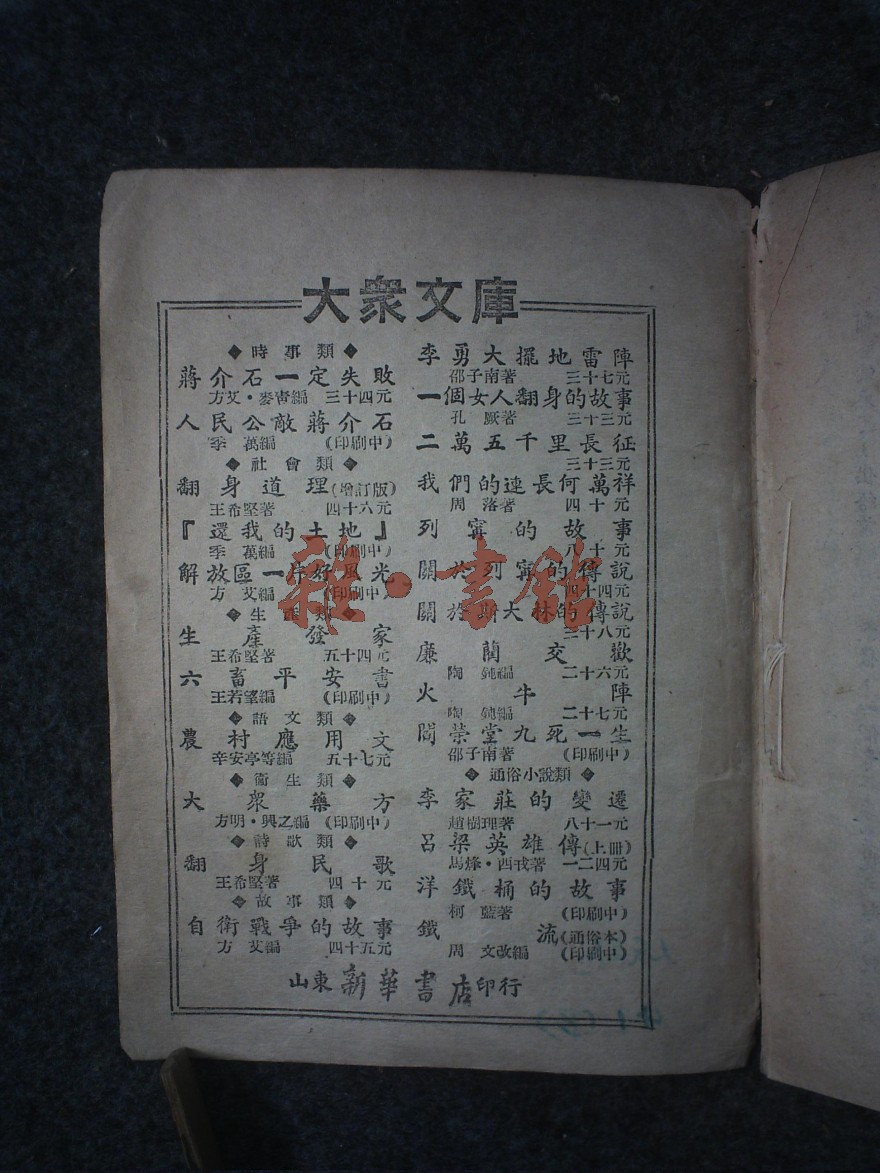 大衆文庫
◆時事類◆
蔣介石一定失敗
方艾·麥靑編 三十四元
人民公敵蔣介石
季萬編 (印刷中)
◆社會類◆
翻身道理(增訂版)
王希堅著 四十六元
『還我的土地』
季萬編 (印刷中)
解放區一片好風光
方艾編 (印刷中)
◆生產類◆
生產發家
王希堅著 五十四元
六畜平安書
王若望編 (印刷中)
◆語文類◆
農村應用文
辛安亭等編 五十七元
◆衞生類◆
大衆藥方
方明·興之編 (印刷中)
◆詩歌類◆
翻身民歌
王希堅著 四十元
◆故事類◆
自衛戰爭的故事
方艾編 四十五元
李勇大擺地雷陣
邵子南著 三十七元
一個女人翻身的故事
孔厥著 三十三元
二萬五千里長征
三十三元
我們的連長何萬祥
周洛著 四十元
列寧的故事
八十元
關於列寧的傳說
四十四元
關於斯大林的傳說
三十八元
廉藺交歡
陶鈍編 二十六元
火牛陣
陶鈍編 二十七元
閻榮堂九死一生
邵子南著 (印刷中)
◆通俗小說類◆
李家莊的變遷
趙樹理著 八十一元
呂梁英雄傳(上冊)
馬烽·西戎著 一二四元
洋鐵桶的故事
柯藍著 (印刷中)
鐵流(通俗本)
周文改編 (印刷中)
山東新華書店印行
雜·書館